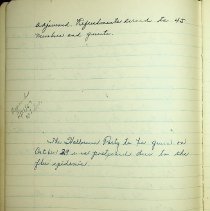 adjourned Refreshments served to 45
members and guests.
The Halloween Party to be given on
October 29 was postponed due to the
flu epidemic.